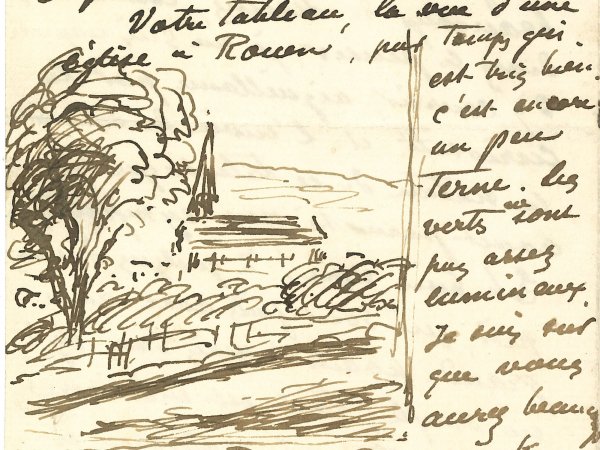 Votre tableau, la vue d'une
église à Rouen, par Temps gris
est très bien.
c'est encore
un peu
Terne. Les
verts ne sont
pas assez
lumineux.
Je suis sur
que vous
aurez beauc